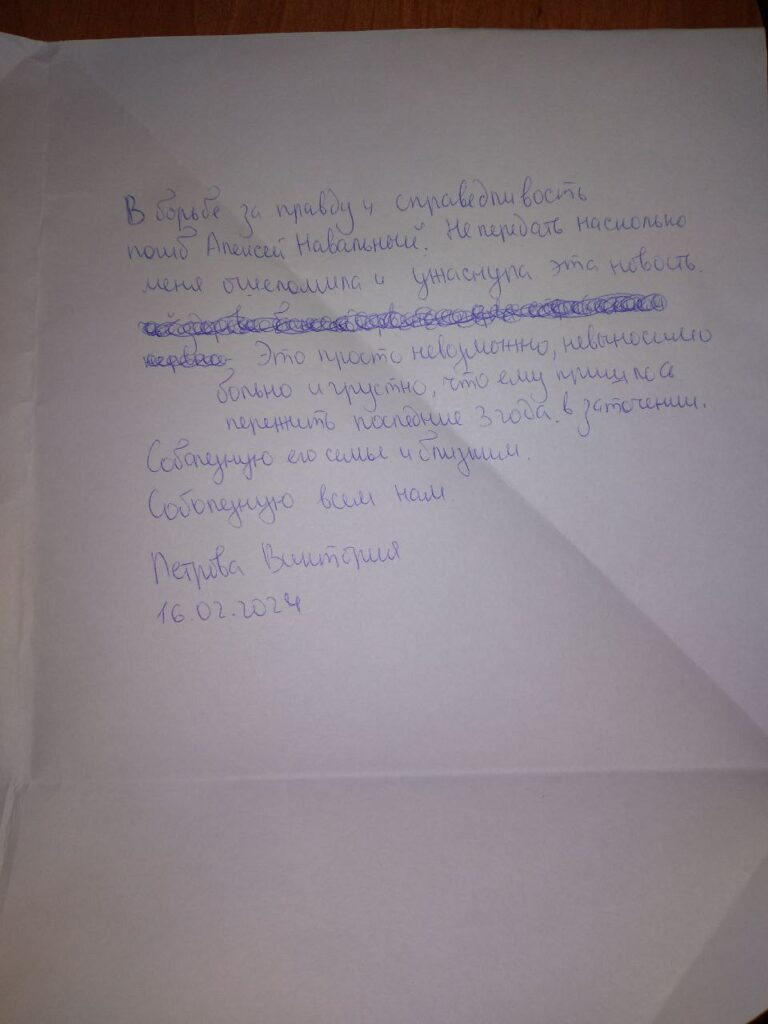 В борьбе за правду и справедливость
погиб Алексей Навальный. Не передать насколько
меня ошеломила и ужаснула эта новость.
Это просто невозможно, невыносимо
больно и грустно, что ему пришлось
пережить последние 3 года в заточении.
Соболезную его семье и близким.
Соболезную всем нам.
Петрова Виктория
16.02.2024